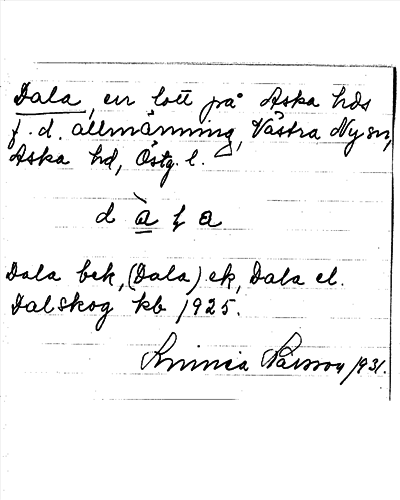 Dala, en lott på Aska hds
f.d. allmänning, Västra Ny sn,
Aska hd, Östg. l.
d à l a
Dala bek, (Dala) ek, Dala el.
Dalskog kb 1925.
Linnea Påvson 1931.